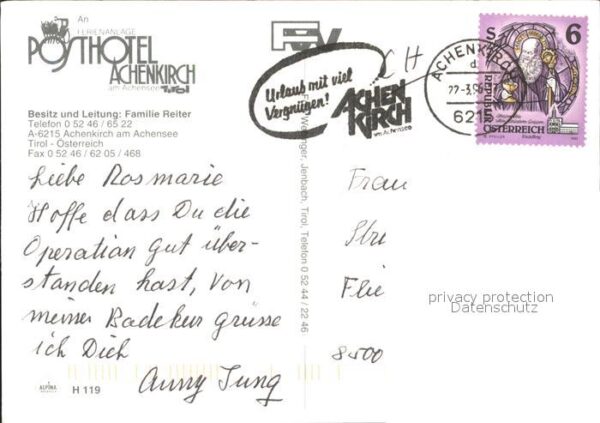 An
FERIENANLAGE
POSTHOTEL
ACHENKIRCH
am Achensee Tirol
Besitz und Leitung: Familie Reiter
Telefon 0 52 46 / 65 22
A-6215 Achenkirch am Achensee
Tirol - Österreich
Fax 0 52 46 / 62 05 / 468
Liebe Rosmarie
Hoffe dass Du die
Operation gut über-
standen hast, von
meiner Badekur grüsse
ich Dich
Anny Jung
ALPINA
H 119
Jenbach, Tirol, Telefon 0 52 44 / 22 46
Urlaub mit viel
Vergnügen!
ACHEN
KIRCH
am Achensee
CH
ACHENKIRCH
S
6
REPUBLIK
ÖSTERREICH
Frau
Flie
8500
privacy protection
Datenschutz